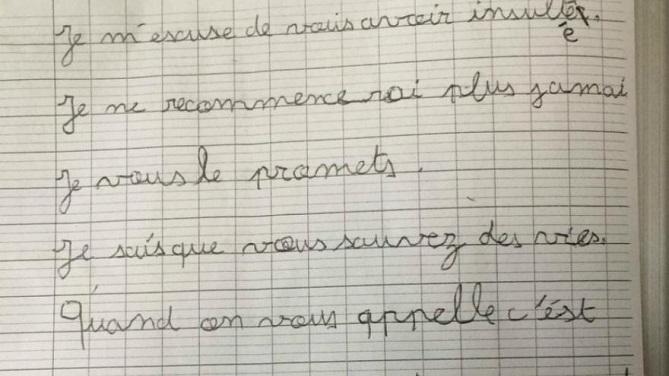 Je m'escuse de vous avoir insulter.
é
Je ne recommencerai plus jamai
Je vous le promets.
Je sais que vous sauvez des vies.
Quand on vous appelle c'est